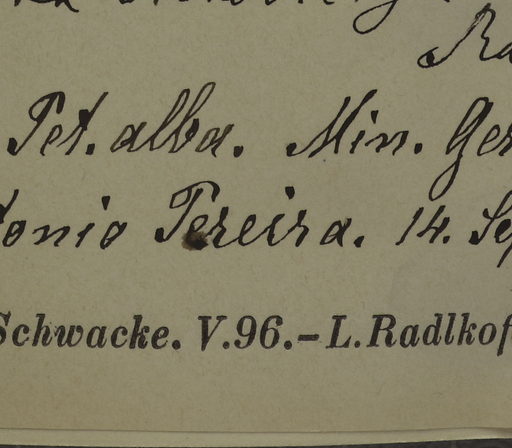 Ra
Pet. alba. Min. Ger
tonio Pereira. 14. Sep
Schwacke. V.96.–L.Radlkof